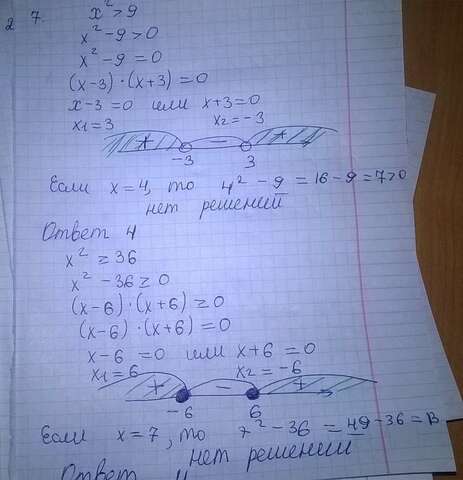 2 7. x² > 9
x² - 9 > 0
x² - 9 = 0
(x-3)·(x+3) = 0
x-3 = 0 или x+3 = 0
x1 = 3 x2 = -3
+ - +
-3 3
Если x = 4, то 4² - 9 = 16 - 9 = 7 > 0
нет решений
Ответ 4
x² ≥ 36
x² - 36 ≥ 0
(x-6)·(x+6) ≥ 0
(x-6)·(x+6) = 0
x-6 = 0 или x+6 = 0
x1 = 6 x2 = -6
+ - +
-6 6
Если x = 7, то 7² - 36 = 49 - 36 = 13
нет решений
Ответ